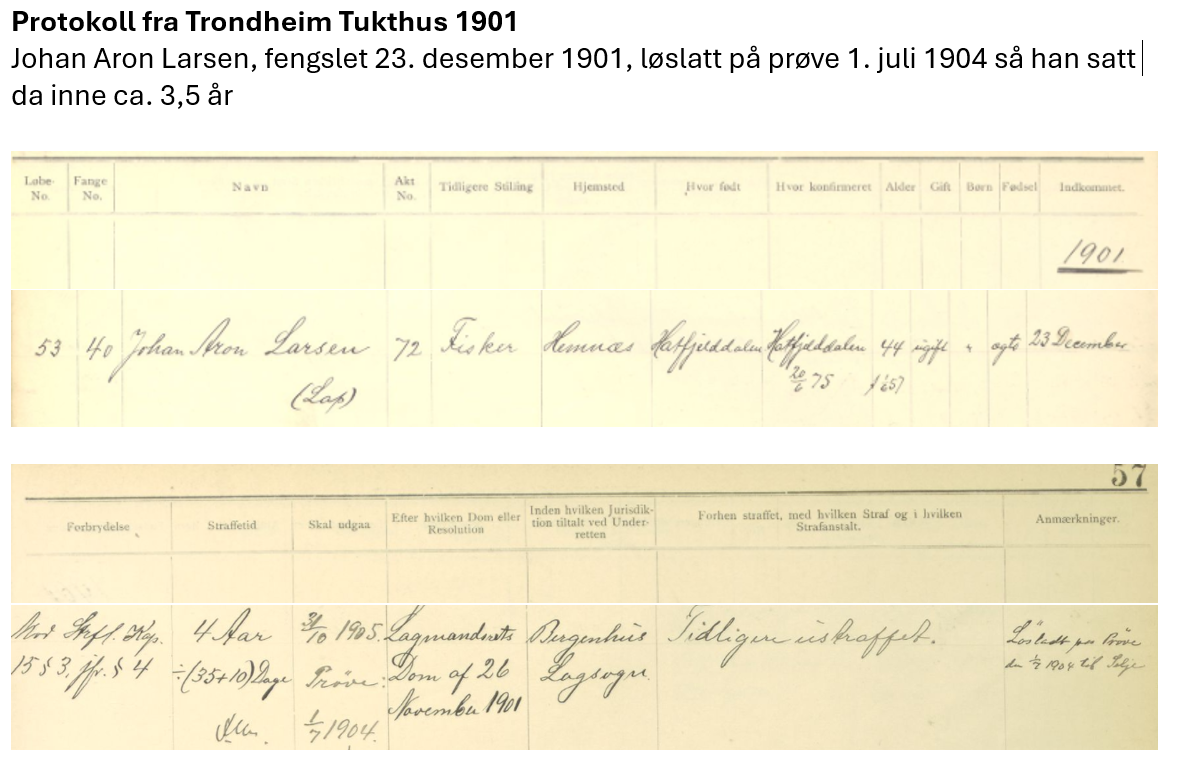 Protokoll fra Trondheim Tukthus 1901
Johan Aron Larsen, fengslet 23. desember 1901, løslatt på prøve 1. juli 1904 så han satt
da inne ca. 3,5 år
Løbe- No. Fange No. Navn Akt No. Tidligere Stilling Hjemsted Hvor født Hvor konfirmeret Alder Gift Børn Fødsel Indkommet.
1901
53 40 Johan Aron Larsen 72 Fisker Hemnæs Hatfjelddalen Hatfjelddalen 44 ugift " ægte 23 December
(Lap) 20/6 75
57
Forbrydelse Straffetid Skal udgaa Efter hvilken Dom eller Resolution Inden hvilken Jurisdik- tion tiltalt ved Under- retten Forhen straffet, med hvilken Straf og i hvilken Strafanstalt. Anmærkninger.
Mod Strfl. Kap. 4 Aar 31/10 1905. Lagmandsrets Bergenhus Tidligere ustraffet. Løsladt paa Prøve
15 § 3, jfr. § 4 ÷(35+10) Dage Prøve: Dom af 26 Lagsogn. den 1/7 1904 til
1/7 1904. November 1901